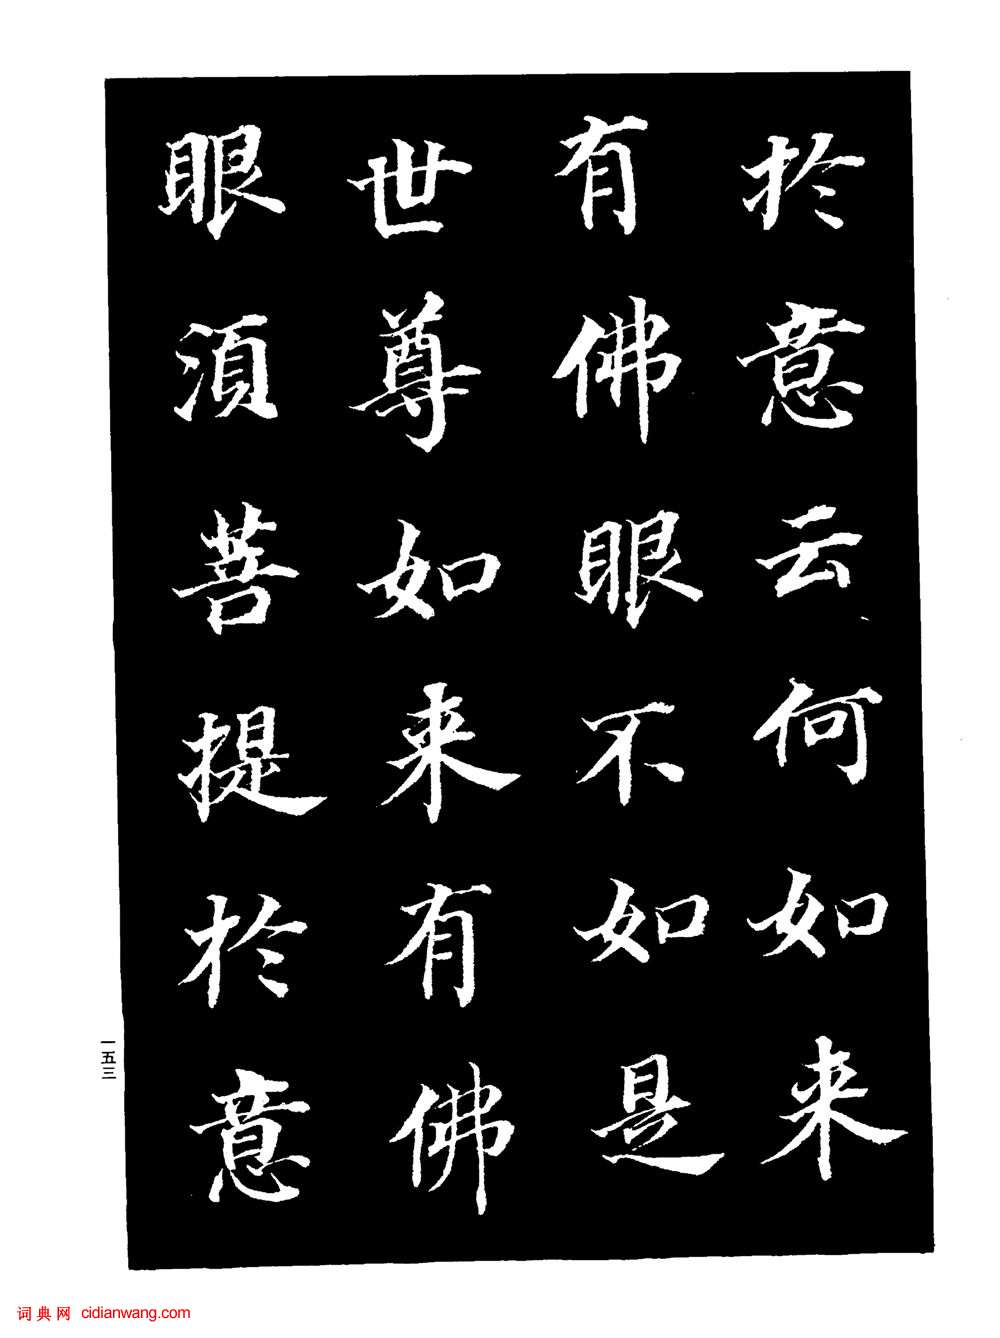 於意云何如来
有佛眼不如是
世尊如来有佛
眼湏菩提於意
一五三
词典网 cidianwang.com